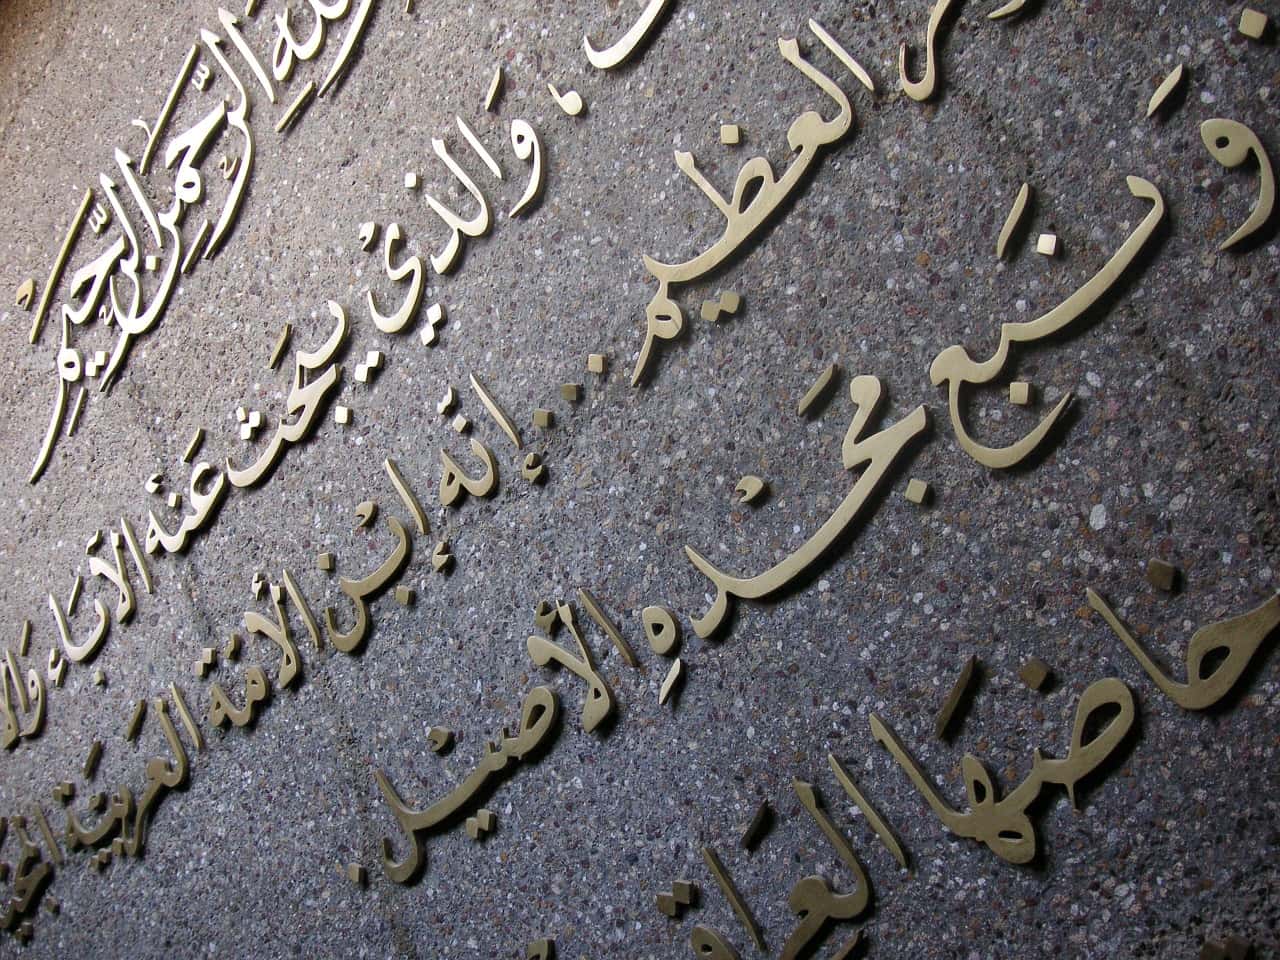 الرَّحْمنِ الرَّحِيمِ
وَالذيْ يبحَث عَنْه الآبَاءِ
العَظيم ... إنّه إبْن الأمَة العَربيَّة
وَ نَبع مَجْدهِ الأصيْل .
خاضَها